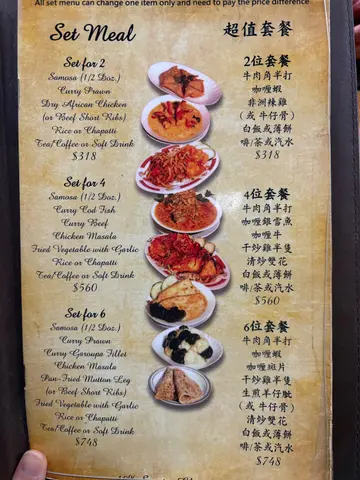 All set menu can change one item only and need to pay the price difference
Set Meal
超值套餐
Set for 2
Samosa (1/2 Doz.)
Curry Prawn
Dry African Chicken
(or Beef Short Ribs)
Rice or Chapatti
Tea/Coffee or Soft Drink
$318
2位套餐
牛肉角半打
咖喱蝦
非洲辣雞
(或 牛仔骨)
白飯或薄餅
啡/茶或汽水
$318
Set for 4
Samosa (1/2 Doz.)
Curry Cod Fish
Curry Beef
Chicken Masala
Fried Vegetable with Garlic
Rice or Chapatti
Tea/Coffee or Soft Drink
$560
4位套餐
牛肉角半打
咖喱銀雪魚
咖喱牛
干炒雞半隻
清炒雙花
白飯或薄餅
啡/茶或汽水
$560
Set for 6
Samosa (1/2 Doz.)
Curry Prawn
Curry Garoupa Fillet
Chicken Masala
Pan-Fried Mutton Leg
(or Beef Short Ribs)
Fried Vegetable with Garlic
Rice or Chapatti
Tea/Coffee or Soft Drink
$748
6位套餐
牛肉角半打
咖喱蝦
咖喱斑片
干炒雞半隻
生煎羊仔髀
(或 牛仔骨)
清炒雙花
白飯或薄餅
啡/茶或汽水
$748